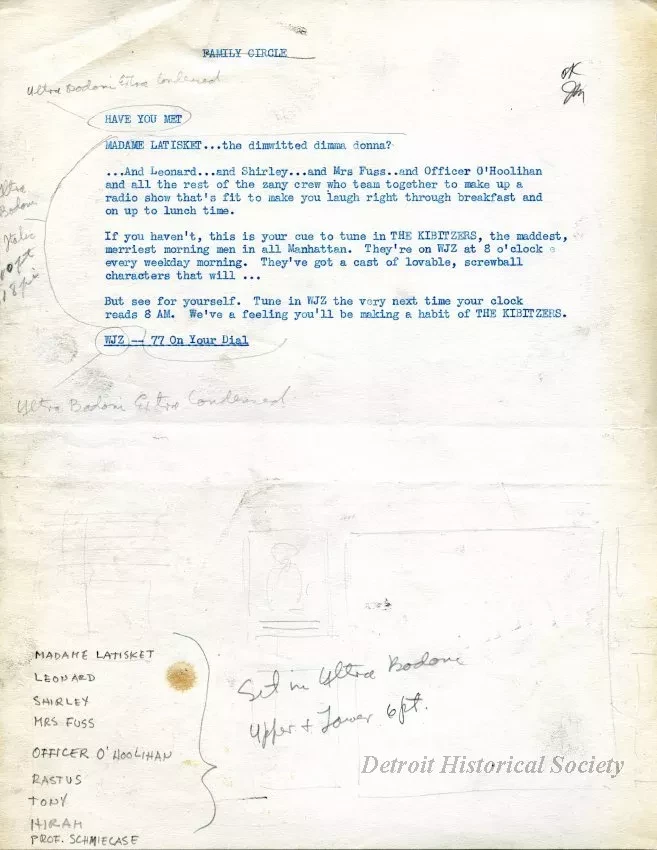 FAMILY CIRCLE
OK
Ultra Bodoni Extra Condensed
HAVE YOU MET
MADAME LATISKET...the dimwitted dimma donna?
...And Leonard...and Shirley...and Mrs Fuss..and Officer O'Hoolihan
and all the rest of the zany crew who team together to make up a
radio show that's fit to make you laugh right through breakfast and
on up to lunch time.
Ultra
Bodoni
Italic
10 pt
18 pi
If you haven't, this is your cue to tune in THE KIBITZERS, the maddest,
merriest morning men in all Manhattan. They're on WJZ at 8 o'clock
every weekday morning. They've got a cast of lovable, screwball
characters that will ...
But see for yourself. Tune in WJZ the very next time your clock
reads 8 AM. We've a feeling you'll be making a habit of THE KIBITZERS.
WJZ -- 77 On Your Dial
Ultra Bodoni Extra Condensed
MADAME LATISKET
LEONARD
SHIRLEY
MRS FUSS
OFFICER O'HOOLIHAN
RASTUS
TONY
HIRAM
PROF. SCHMIECASE
Set in Ultra Bodoni
Upper + Lower 6pt.
Detroit Historical Society